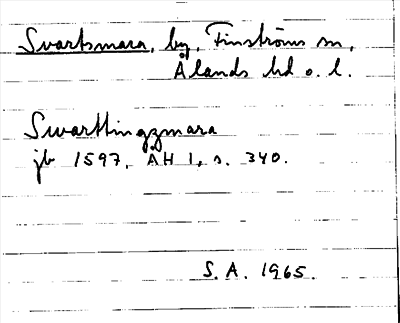 Svartsmara, by, Finströms sn,
Ålands hd o. l.
Swarttingzmara
jb 1597, ÅH 1, s. 340.
S. A. 1965.